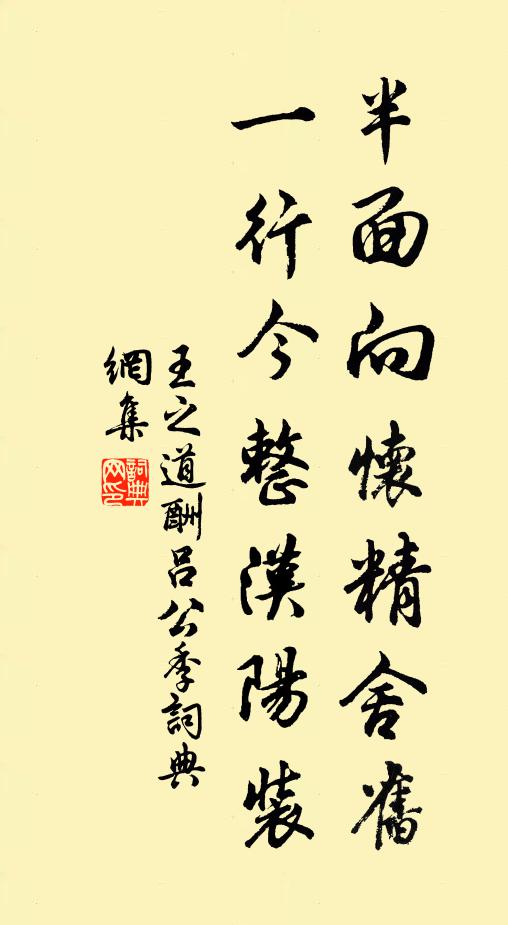 半面向懷精舍舊
一行今整漢陽裝
王之道酬呂公季詞典
網集
詞典網印